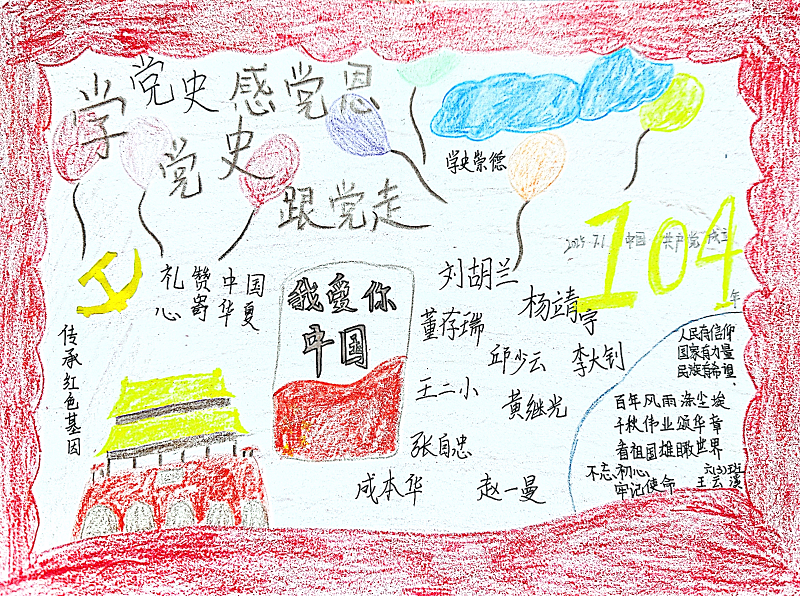 学党史感党恩
学党史
跟党走
学史崇德
2025.7.1 中国共产党成立
104
年
礼赞中国
心寄华夏
传承红色基因
我爱你
中国
刘胡兰
董存瑞
杨靖宇
邱少云
李大钊
王二小
黄继光
张自忠
成本华
赵一曼
人民有信仰
国家有力量
民族有希望
百年风雨涤尘埃
千秋伟业颂华章
看祖国雄瞰世界
不忘初心
牢记使命
六(3)班
王云溪